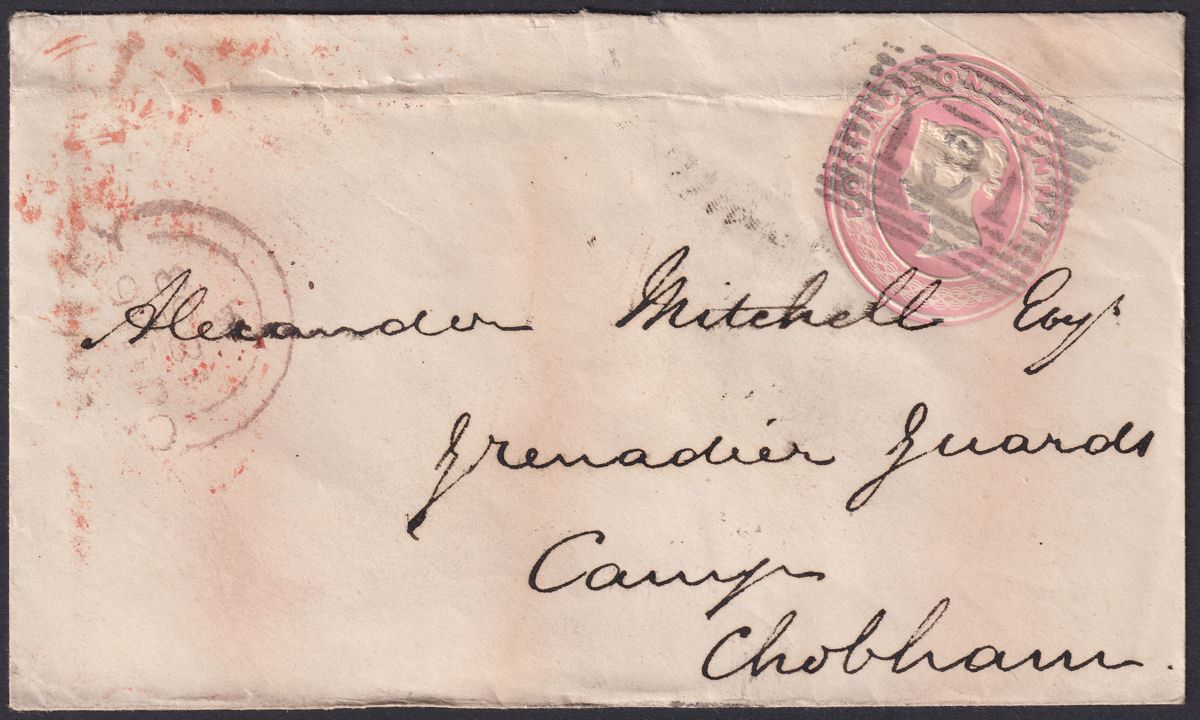 POSTAGE ONE PENNY
Alexander Mitchell Esqr
Grenadier Guards
Camp
Chobham.